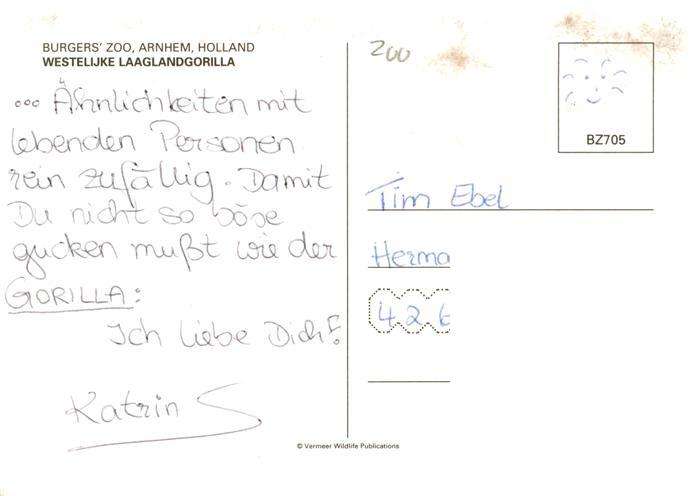 BURGERS' ZOO, ARNHEM, HOLLAND
WESTELIJKE LAAGLANDGORILLA
... Ähnlichkeiten mit
lebenden Personen
rein zufällig. Damit
Du nicht so böse
gucken mußt wie der
GORILLA:
Ich liebe Dich!
Katrin S
200
BZ705
Tim Ebel
Herma
426
© Vermeer Wildlife Publications